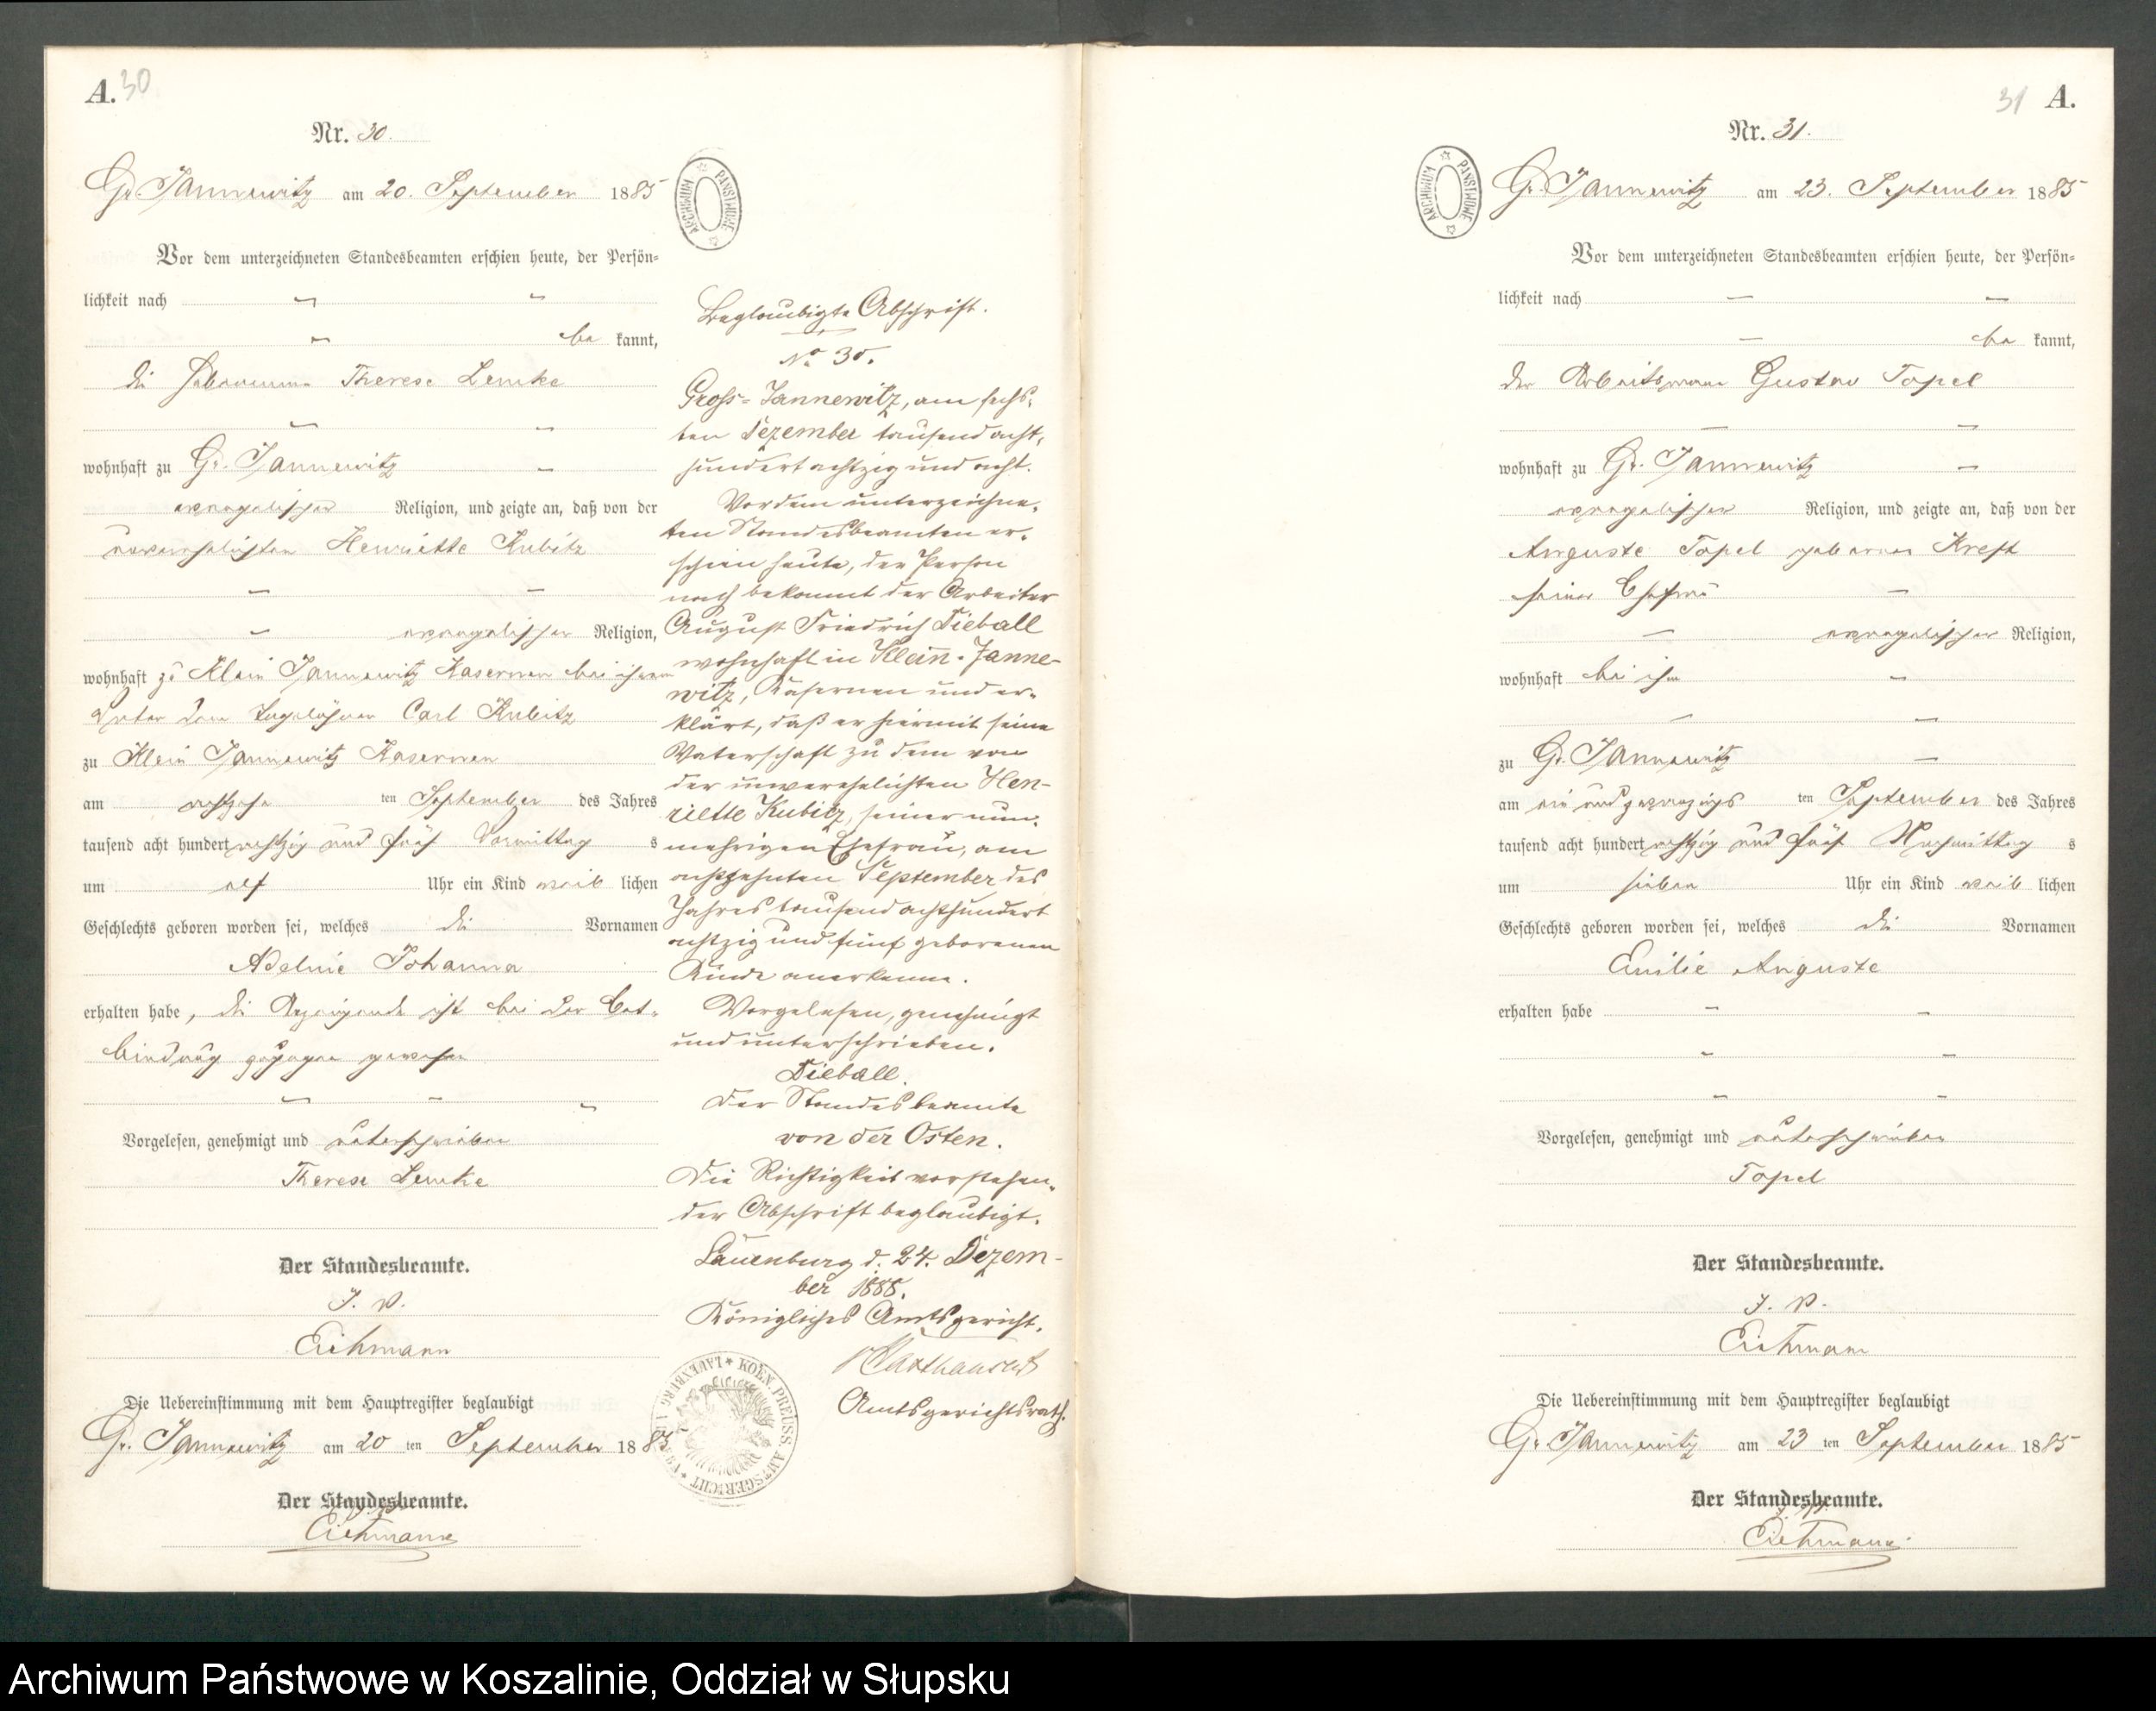 A. 30
Nr. 30.
Gr. Jannewitz am 20. September 1885
Vor dem unterzeichneten Standesbeamten erschien heute, der Persön-
lichkeit nach
be kannt,
die Hebamme Therese Lemke
wohnhaft zu Gr. Jannewitz
evangelischer Religion, und zeigte an, daß von der
unverehelichten Henriette Kubitz
evangelischer Religion,
wohnhaft zu Klein Jannewitz Kasernen bei ihrem
Vater dem Tagelöhner Carl Kubitz
zu Klein Jannewitz Kasernen
am achtzehn ten September des Jahres
tausend acht hundert achtzig und fünf Vormittag s
um elf Uhr ein Kind weib lichen
Geschlechts geboren worden sei, welches die Vornamen
Johanna
erhalten habe, die Anzeigende ist bei der Ent-
bindung zugegen gewesen
Vorgelesen, genehmigt und unterschrieben
Therese Lemke
Der Standesbeamte.
J. V.
Eichmann
Die Uebereinstimmung mit dem Hauptregister beglaubigt
Gr. Jannewitz am 20 ten September 1885
Der Standesbeamte.
J. V.
Eichmann
ARCHIWUM PAŃSTWOWE
Beglaubigte Abschrift.
No 30.
Gross-Jannewitz, am sechs-
ten Dezember tausend acht-
hundert achtzig und acht.
Vor dem unterzeichne-
ten Standesbeamten er-
schien heute, der Person
nach bekannt der Arbeiter
August Friedrich Dieball
wohnhaft in Klein-Janne-
witz, Kasernen und er-
klärt, daß er hiermit seine
Vaterschaft zu dem von
der unverehelichten Hen-
riette Kubitz, seiner nun-
mehrigen Ehefrau, am
achtzehnten September des
Jahres tausend achthundert
achtzig und fünf geborenen
Kinde anerkenne.
Vorgelesen, genehmigt
und unterschrieben.
Dieball.
Der Standesbeamte
von der Osten.
Die Richtigkeit vorstehen-
der Abschrift beglaubigt.
Lauenburg d. 24. Dezem-
ber 1888.
Königliches Amtsgericht.
Amtsgerichtsrath.
KOEN. PREUSS. AMTSGERICHT LAUENBURG
31 A.
Nr. 31.
ARCHIWUM PAŃSTWOWE
Gr. Jannewitz am 23. September 1885
Vor dem unterzeichneten Standesbeamten erschien heute, der Persön-
lichkeit nach
be kannt,
der Arbeitsmann Gustav Topel
wohnhaft zu Gr. Jannewitz
evangelischer Religion, und zeigte an, daß von der
Auguste Topel geborenen Kreft
seiner Ehefrau
evangelischer Religion,
wohnhaft bei ihm
zu Gr. Jannewitz
am ein und zwanzigs ten September des Jahres
tausend acht hundert achtzig und fünf Nachmittag s
um sieben Uhr ein Kind weib lichen
Geschlechts geboren worden sei, welches die Vornamen
Emilie Auguste
erhalten habe
Vorgelesen, genehmigt und unterschrieben
Topel
Der Standesbeamte.
J. V.
Eichmann
Die Uebereinstimmung mit dem Hauptregister beglaubigt
Gr. Jannewitz am 23 ten September 1885
Der Standesbeamte.
J. V.
Eichmann
Archiwum Państwowe w Koszalinie, Oddział w Słupsku